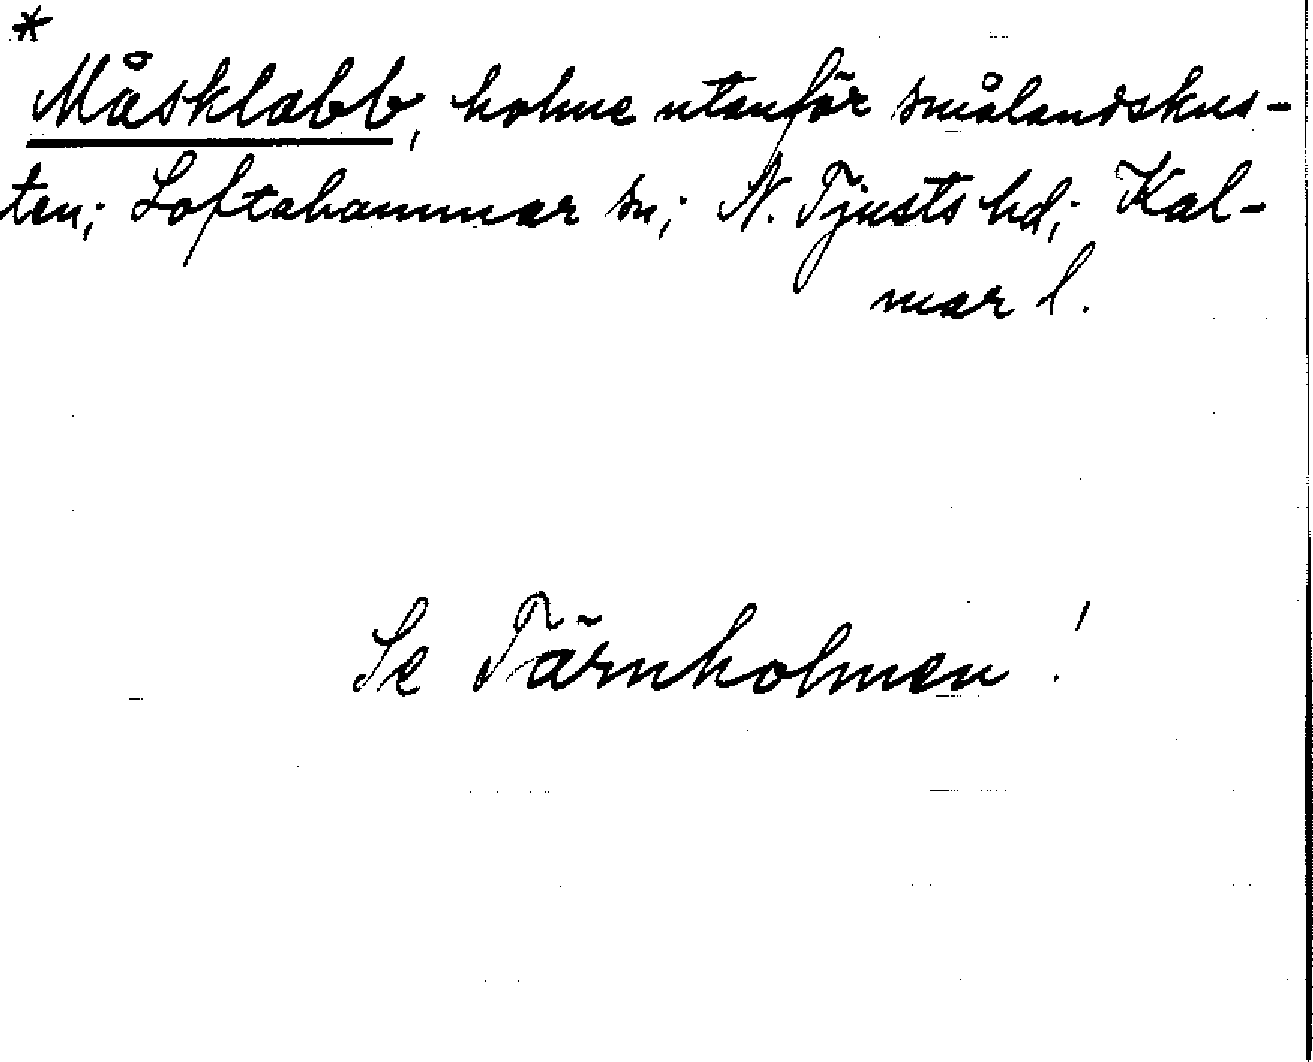 *
Måsklabb, holme utanför smålandskus-
ten; Loftahammar sn; N. Tjusts hd; Kal-
mar l.
Se Tärnholmen!